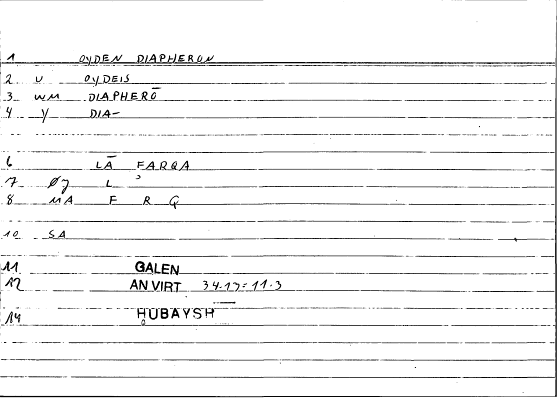 1 OYDEN DIAPHERON
2 U OYDEIS
3 WM DIAPHERŌ
4 Y DIA-
6 LĀ FARQA
7 ØJ L ʾ
8 MA F R Q
10 SA
11 GALEN
12 AN VIRT
14 ḤUBAYSH